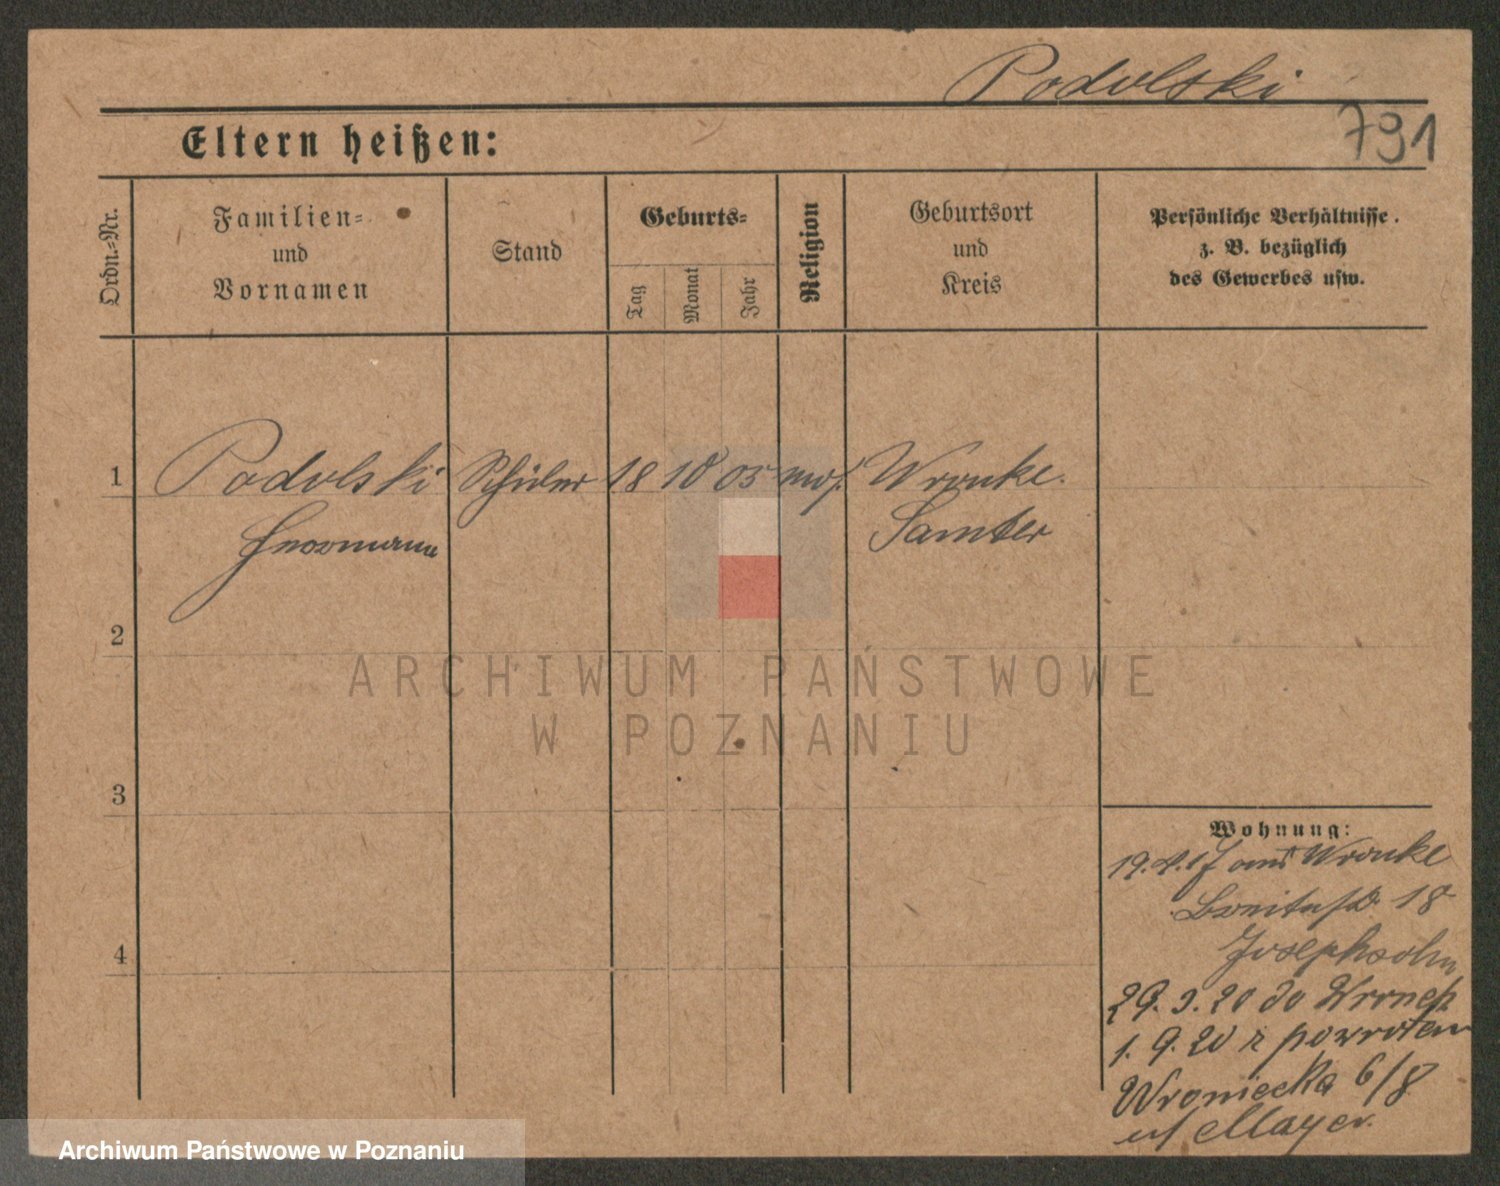 Podolski
791
Eltern heißen:
Ordn.=Nr.
Familien=
und
Vornamen
Stand
Geburts=
Tag
Monat
Jahr
Religion
Geburtsort
und
Kreis
Persönliche Verhältnisse.
z. B. bezüglich
des Gewerbes usw.
1 Podolski Schüler 18 10 05 mos. Wronke.
Hermann Samter
2
3
4
Wohnung:
19.4.17 aus Wronke
Breitestr. 18
Josephsohn
29.3.20 do Wronek
1.9.20 z powrotem
Wroniecka 6/8
Mayer.
ARCHIWUM PAŃSTWOWE
W POZNANIU
Archiwum Państwowe w Poznaniu